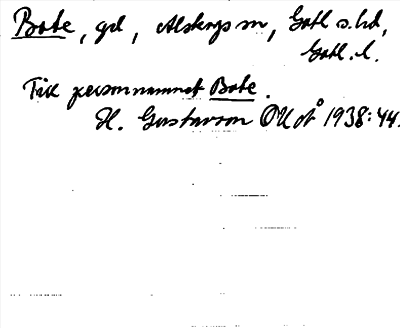 Bote, grd, Alskogs sn, Gotl. s. hd,
Gotl. l.
Till personnamnet Bote.
H. Gustavson OUÅ 1938:44.